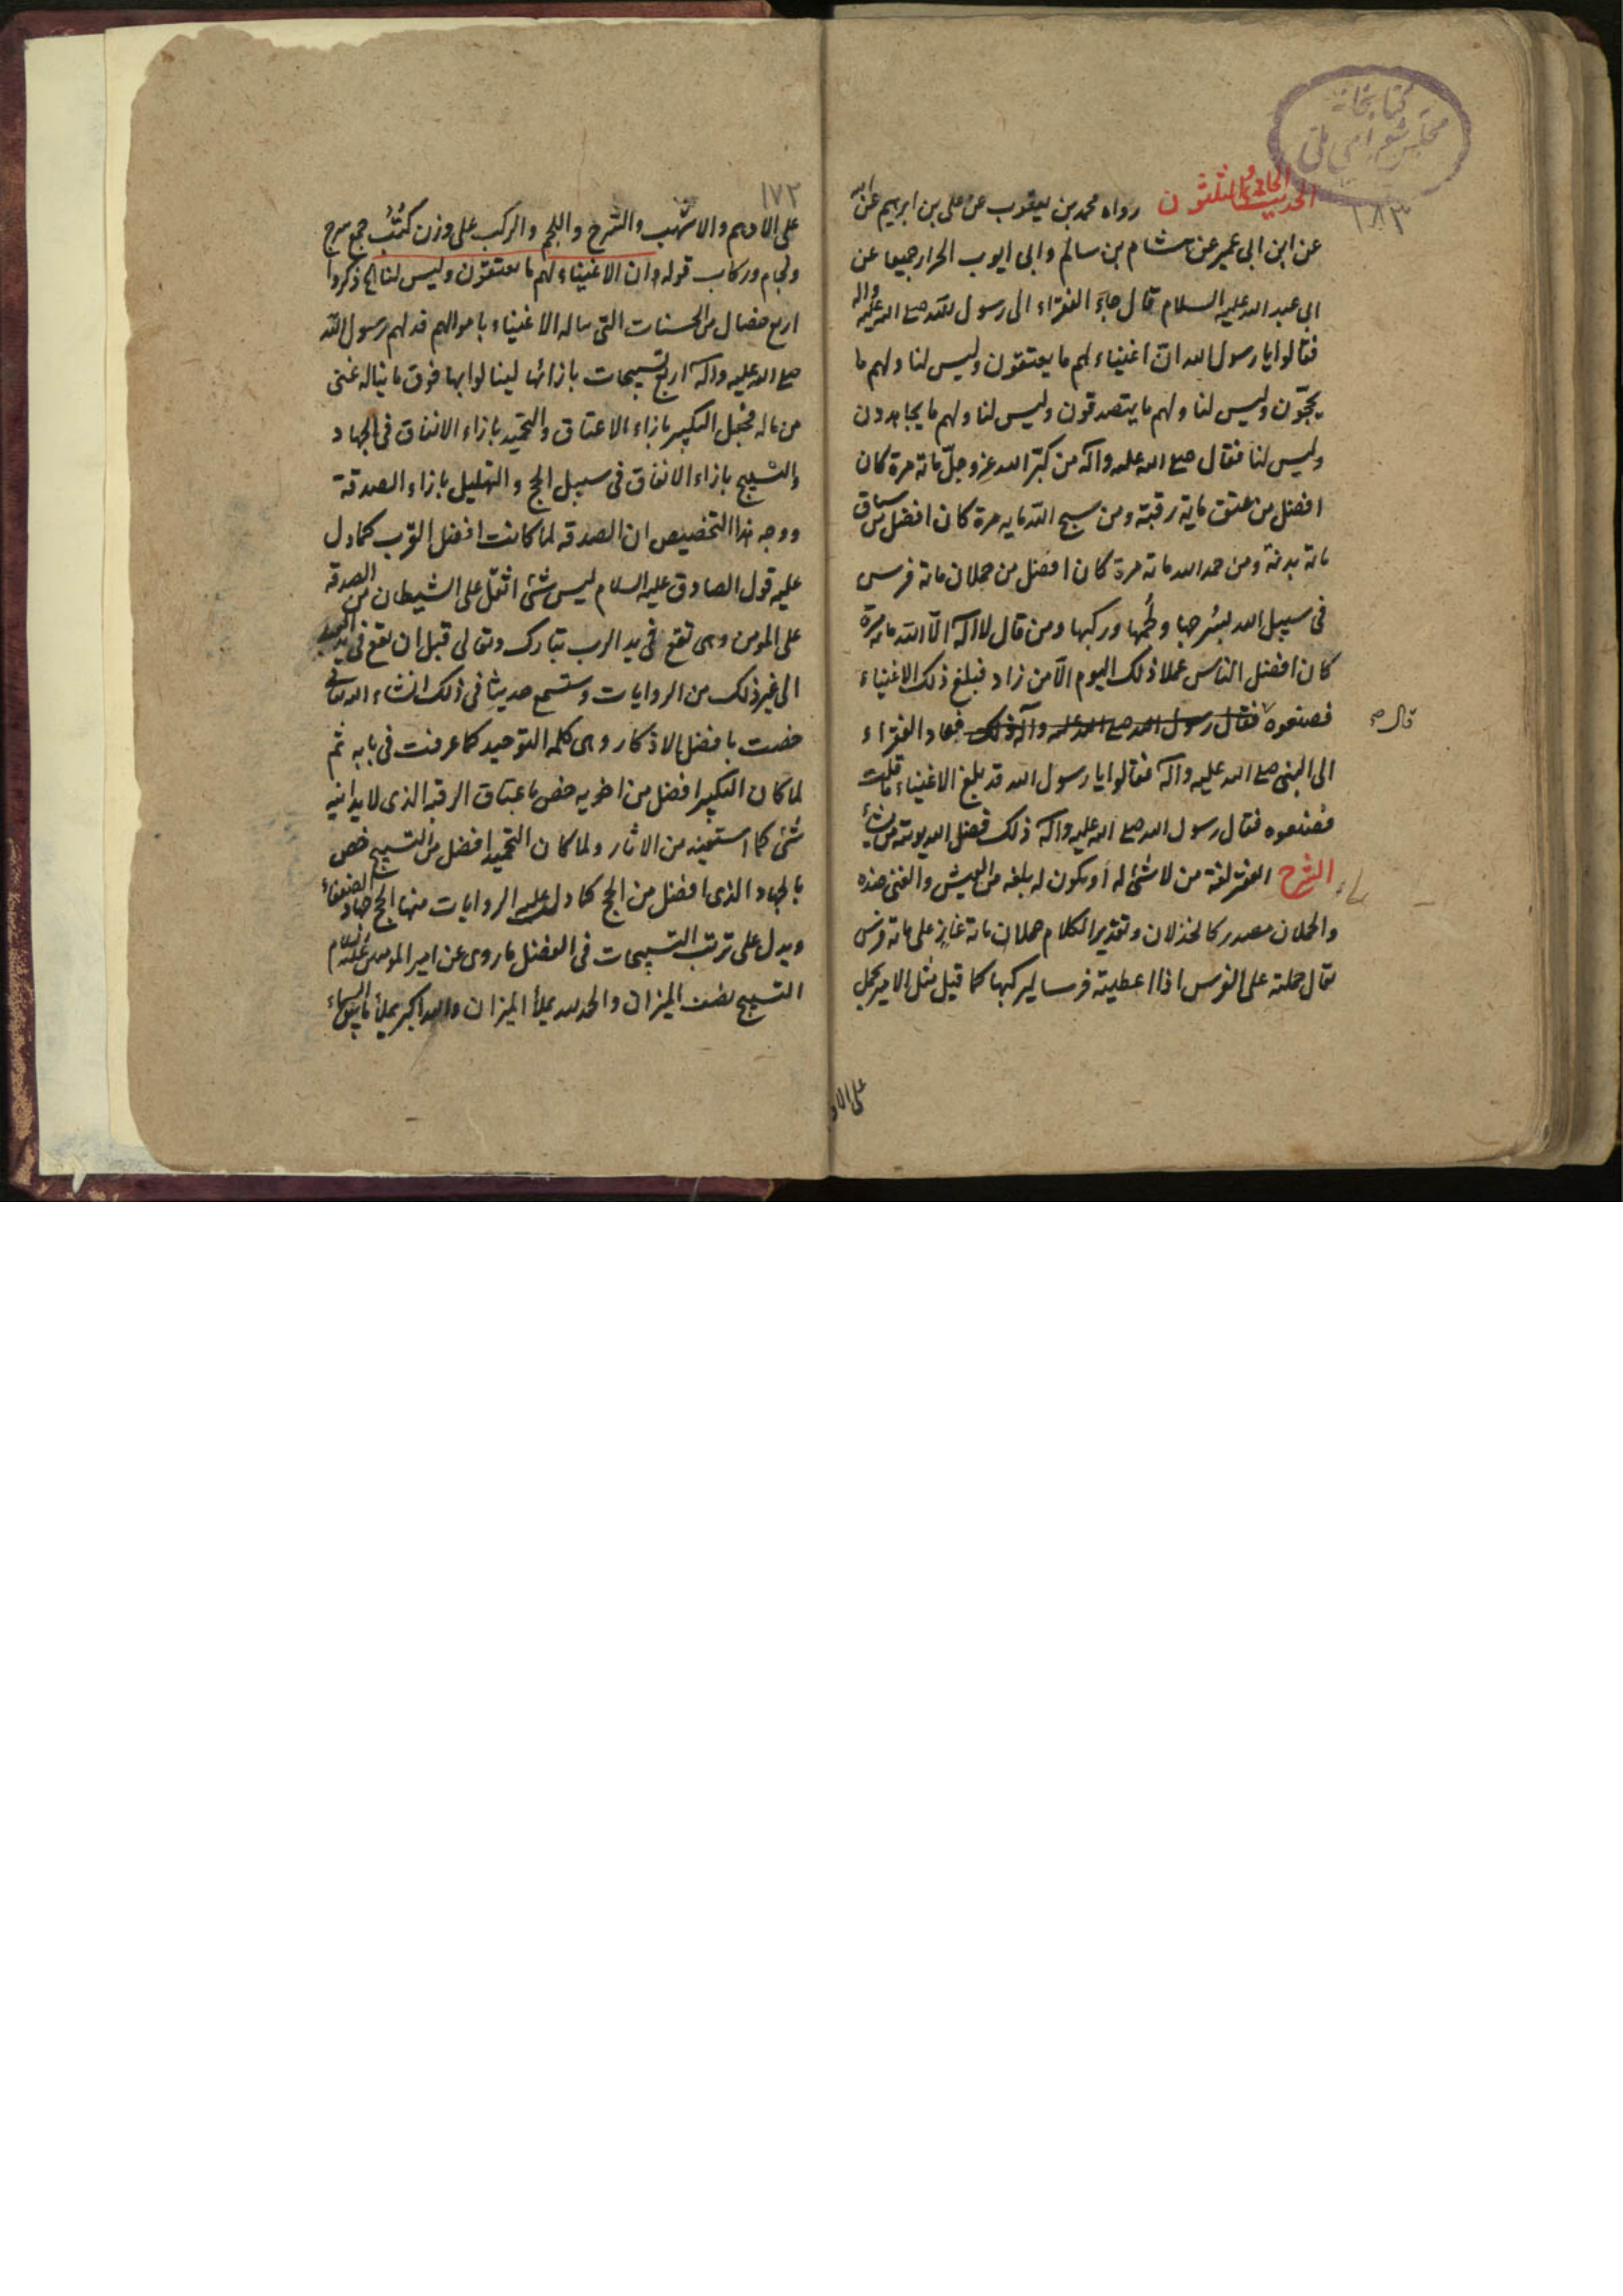 كتابخانه
مجلس شورای ملی
١٨٣
الحديث الحادي والثلثون رواه محمد بن يعقوب عن علي بن ابرهيم عن ابيه
عن ابن ابي عمير عن هشام بن سالم وابي ايوب الخزاز جميعا عن
ابي عبد الله عليه السلام قال جاء الفقراء الى رسول الله صلى الله عليه واله
فقالوا يا رسول الله ان اغنياء لهم ما يعتقون وليس لنا ولهم ما
يحجّون وليس لنا ولهم ما يتصدقون وليس لنا ولهم ما يجاهدون
وليس لنا فقال صلى الله عليه وآله من كبّر الله عز وجلّ مائة مرة كان
افضل من عتق ماية رقبة ومن سبح الله ماية مرة كان افضل من سياق
مائة بدنة ومن حمد الله مائة مرة كان افضل من حملان مائة فرس
في سبيل الله بسُرجها ولُجُمها وركبها ومن قال لا اله الّا الله مائة مرة
كان افضل الناس عملا ذلك اليوم الّا من زاد فبلغ ذلك الاغنياء
فصنعوه فقال رسول الله صلى الله عليه وآله ذلك فعاد الفقراء
قال
الى النبي صلى الله عليه وآله فقالوا يا رسول الله قد بلغ الاغنياء ما قلت
فصنعوه فقال رسول الله صلى الله عليه وآله ذلك فضل الله يوتيه من يشاء
الشرح الفقر لغة من لا شئ له أو يكون له بلغة من العيش والغنى ضده
والحملان مصدر كالخذلان وتقدير الكلام حملان مائة غازٍ على مائة فرس
يقال حملته على الفرس اذا اعطيته فرسا ليركبها كما قيل مثل الامير يحمل
على الاد
١٧٢
على الادهم والاشهب والسّرج واللجم والركب على وزن كُتُب جمع سرج
ولجام وركاب قوله وان الاغنياء لهم ما يعتقون وليس لنا الخ ذكروا
اربع خصال من الحسنات التي يناله الاغنياء باموالهم فدلهم رسول الله
صلى الله عليه وآله اربع تسبيحات بازائها لينالوا بها فوق ما يناله غنى
من ماله فجعل التكبير بازاء الاعتاق والتحميد بازاء الانفاق في الجهاد
والتسبيح بازاء الانفاق في سبيل الحج والتهليل بازاء الصدقة
ووجه هذا التخصيص ان الصدقة لما كانت افضل القرب كما دل
عليه قول الصادق عليه السلام ليس شئ اثقل على الشيطان من الصدقة
على المومن وهي تقع في يد الرب تبارك وتعالى قبل ان تقع في يد العبد
الى غير ذلك من الروايات وستسمع حديثا في ذلك انشاء الله تعالى
خصت بافضل الاذكار وهي كلمة التوحيد كما عرفت في بابه ثم
لما كان التكبير افضل من اخويه خص باعتاق الرقبة الذي لا يدانيه
شئ كما استبينه من الاثار ولما كان التحميد افضل من التسبيح خص
بالجهاد الذي افضل من الحج كما دل عليه الروايات منها الحج جهاد الضعفاء
ويدل على ترتب التسبيحات في الفضل ما روى عن امير المومنين عليه السلام
التسبيح نصف الميزان والحمد لله يملأ الميزان والله اكبر يملأ ما بين السماء